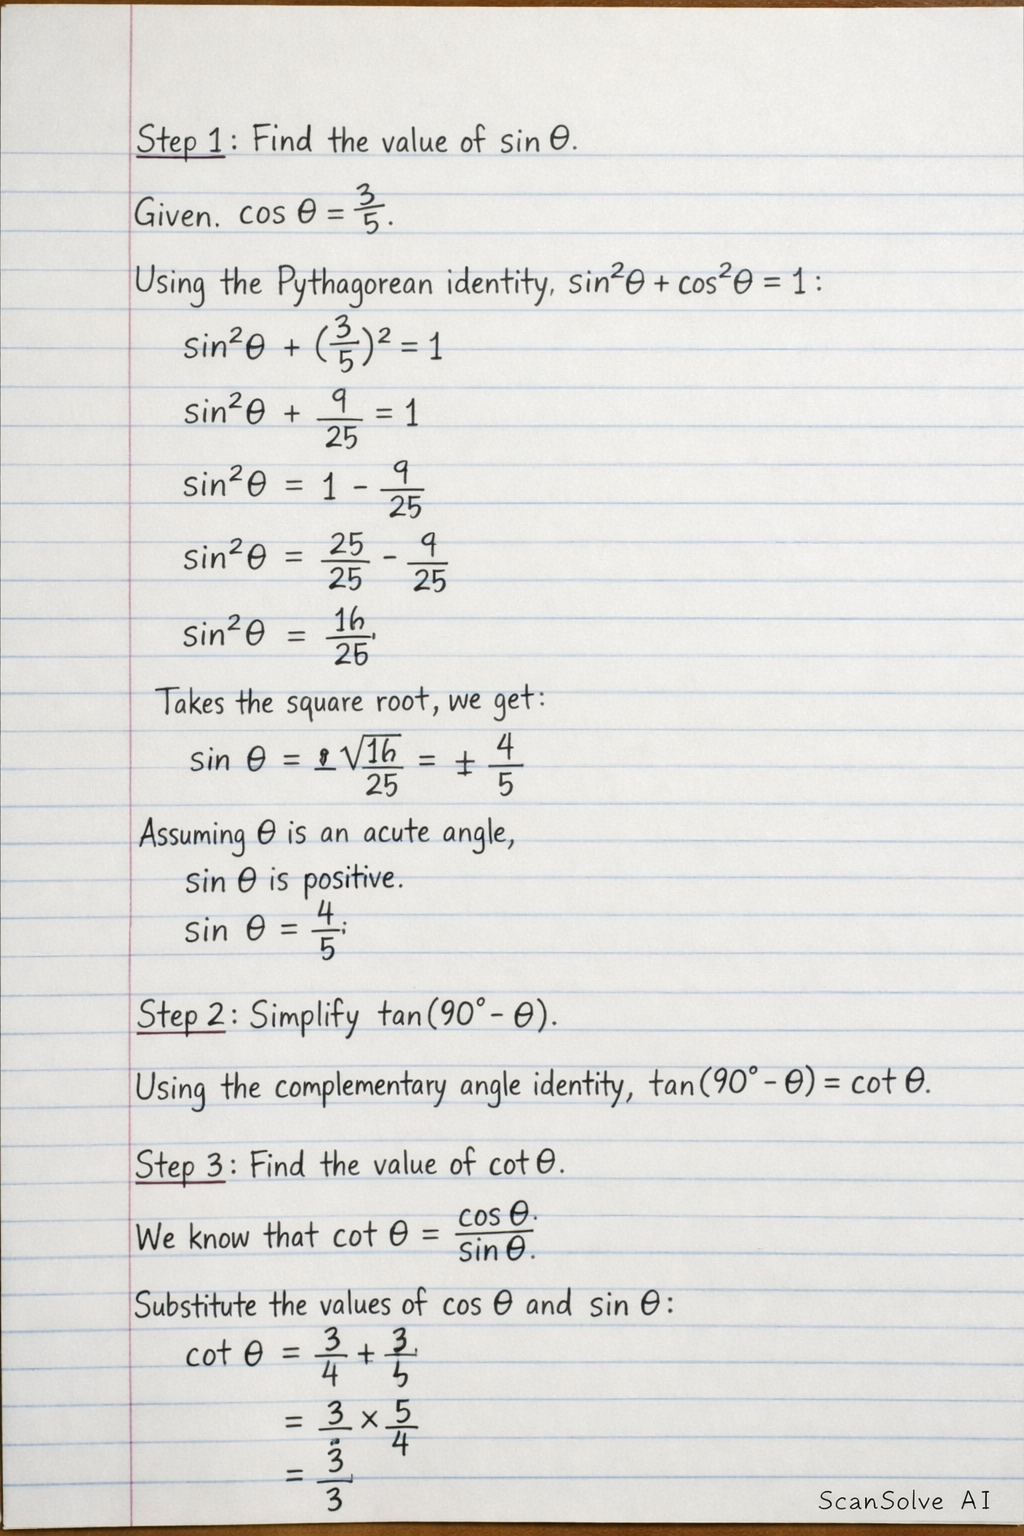 Step 1: Find the value of sin θ.
Given. cos θ = 3/5.
Using the Pythagorean identity, sin²θ + cos²θ = 1:
sin²θ + (3/5)² = 1
sin²θ + 9/25 = 1
sin²θ = 1 - 9/25
sin²θ = 25/25 - 9/25
sin²θ = 16/25
Takes the square root, we get:
sin θ = ± √16/25 = ± 4/5
Assuming θ is an acute angle,
sin θ is positive.
sin θ = 4/5;
Step 2: Simplify tan(90° - θ).
Using the complementary angle identity, tan(90° - θ) = cot θ.
Step 3: Find the value of cot θ.
We know that cot θ = cos θ./sin θ.
Substitute the values of cos θ and sin θ:
cot θ = 3/4 + 3/5
= 3/ × 5/4
= 3/3
ScanSolve AI